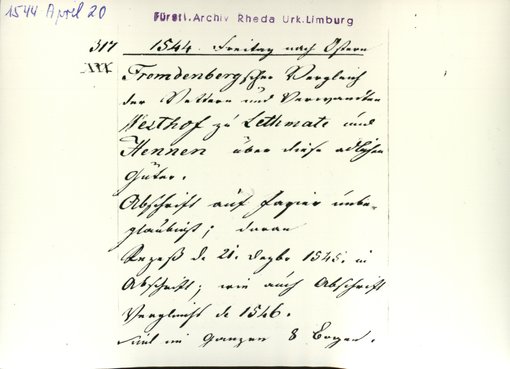 1544 April 20
Fürstl. Archiv Rheda Urk. Limburg
317 1544. Freitag nach Ostern
Fromdenbergscher Vergleich
der Vettern und Verwandten
Westhof zu Lethmate und
Hennen über diese adlichen
Güter.
Abschrift auf Papier unbe-
glaubigt; daran
Rezeß de 21. Dezbr 1545. in
Abschrift; wie auch Abschrift
Vergleichs de 1546.
im Ganzen 8 Bogen.